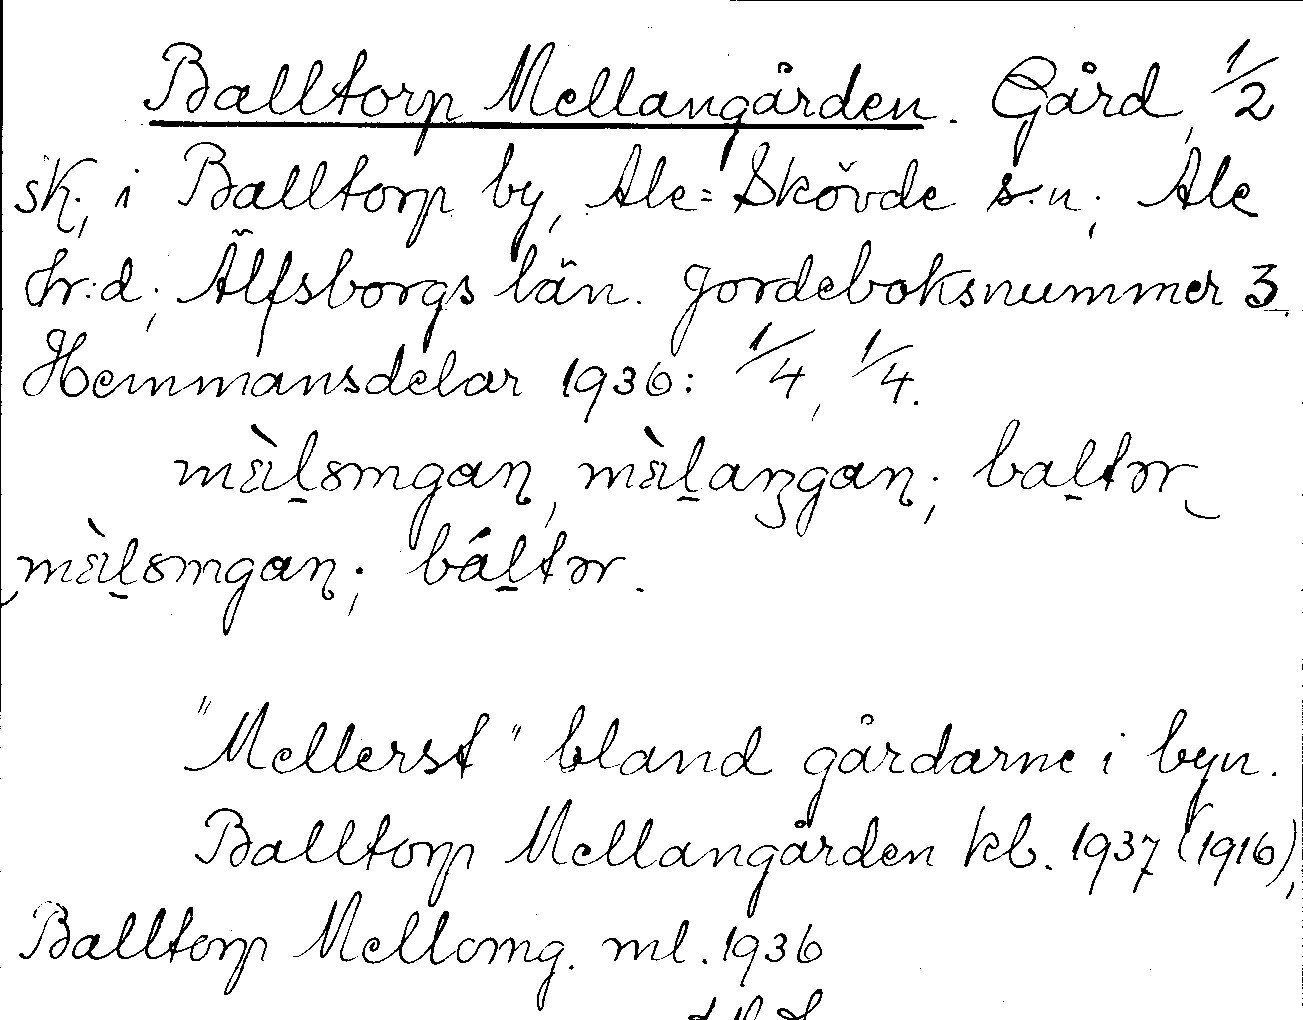 Balltorp Mellangården. Gård, 1/2
sk., i Balltorp by, Ale-Skövde s:n, Ale
hr:d, Älfsborgs län. Jordeboksnummer 3.
Hemmansdelar 1936: 1/4, 1/4.
"Mellerst" bland gårdarne i byn.
Balltorp Mellangården kb. 1937 (1916),
Balltorp Mellomg. ml. 1936